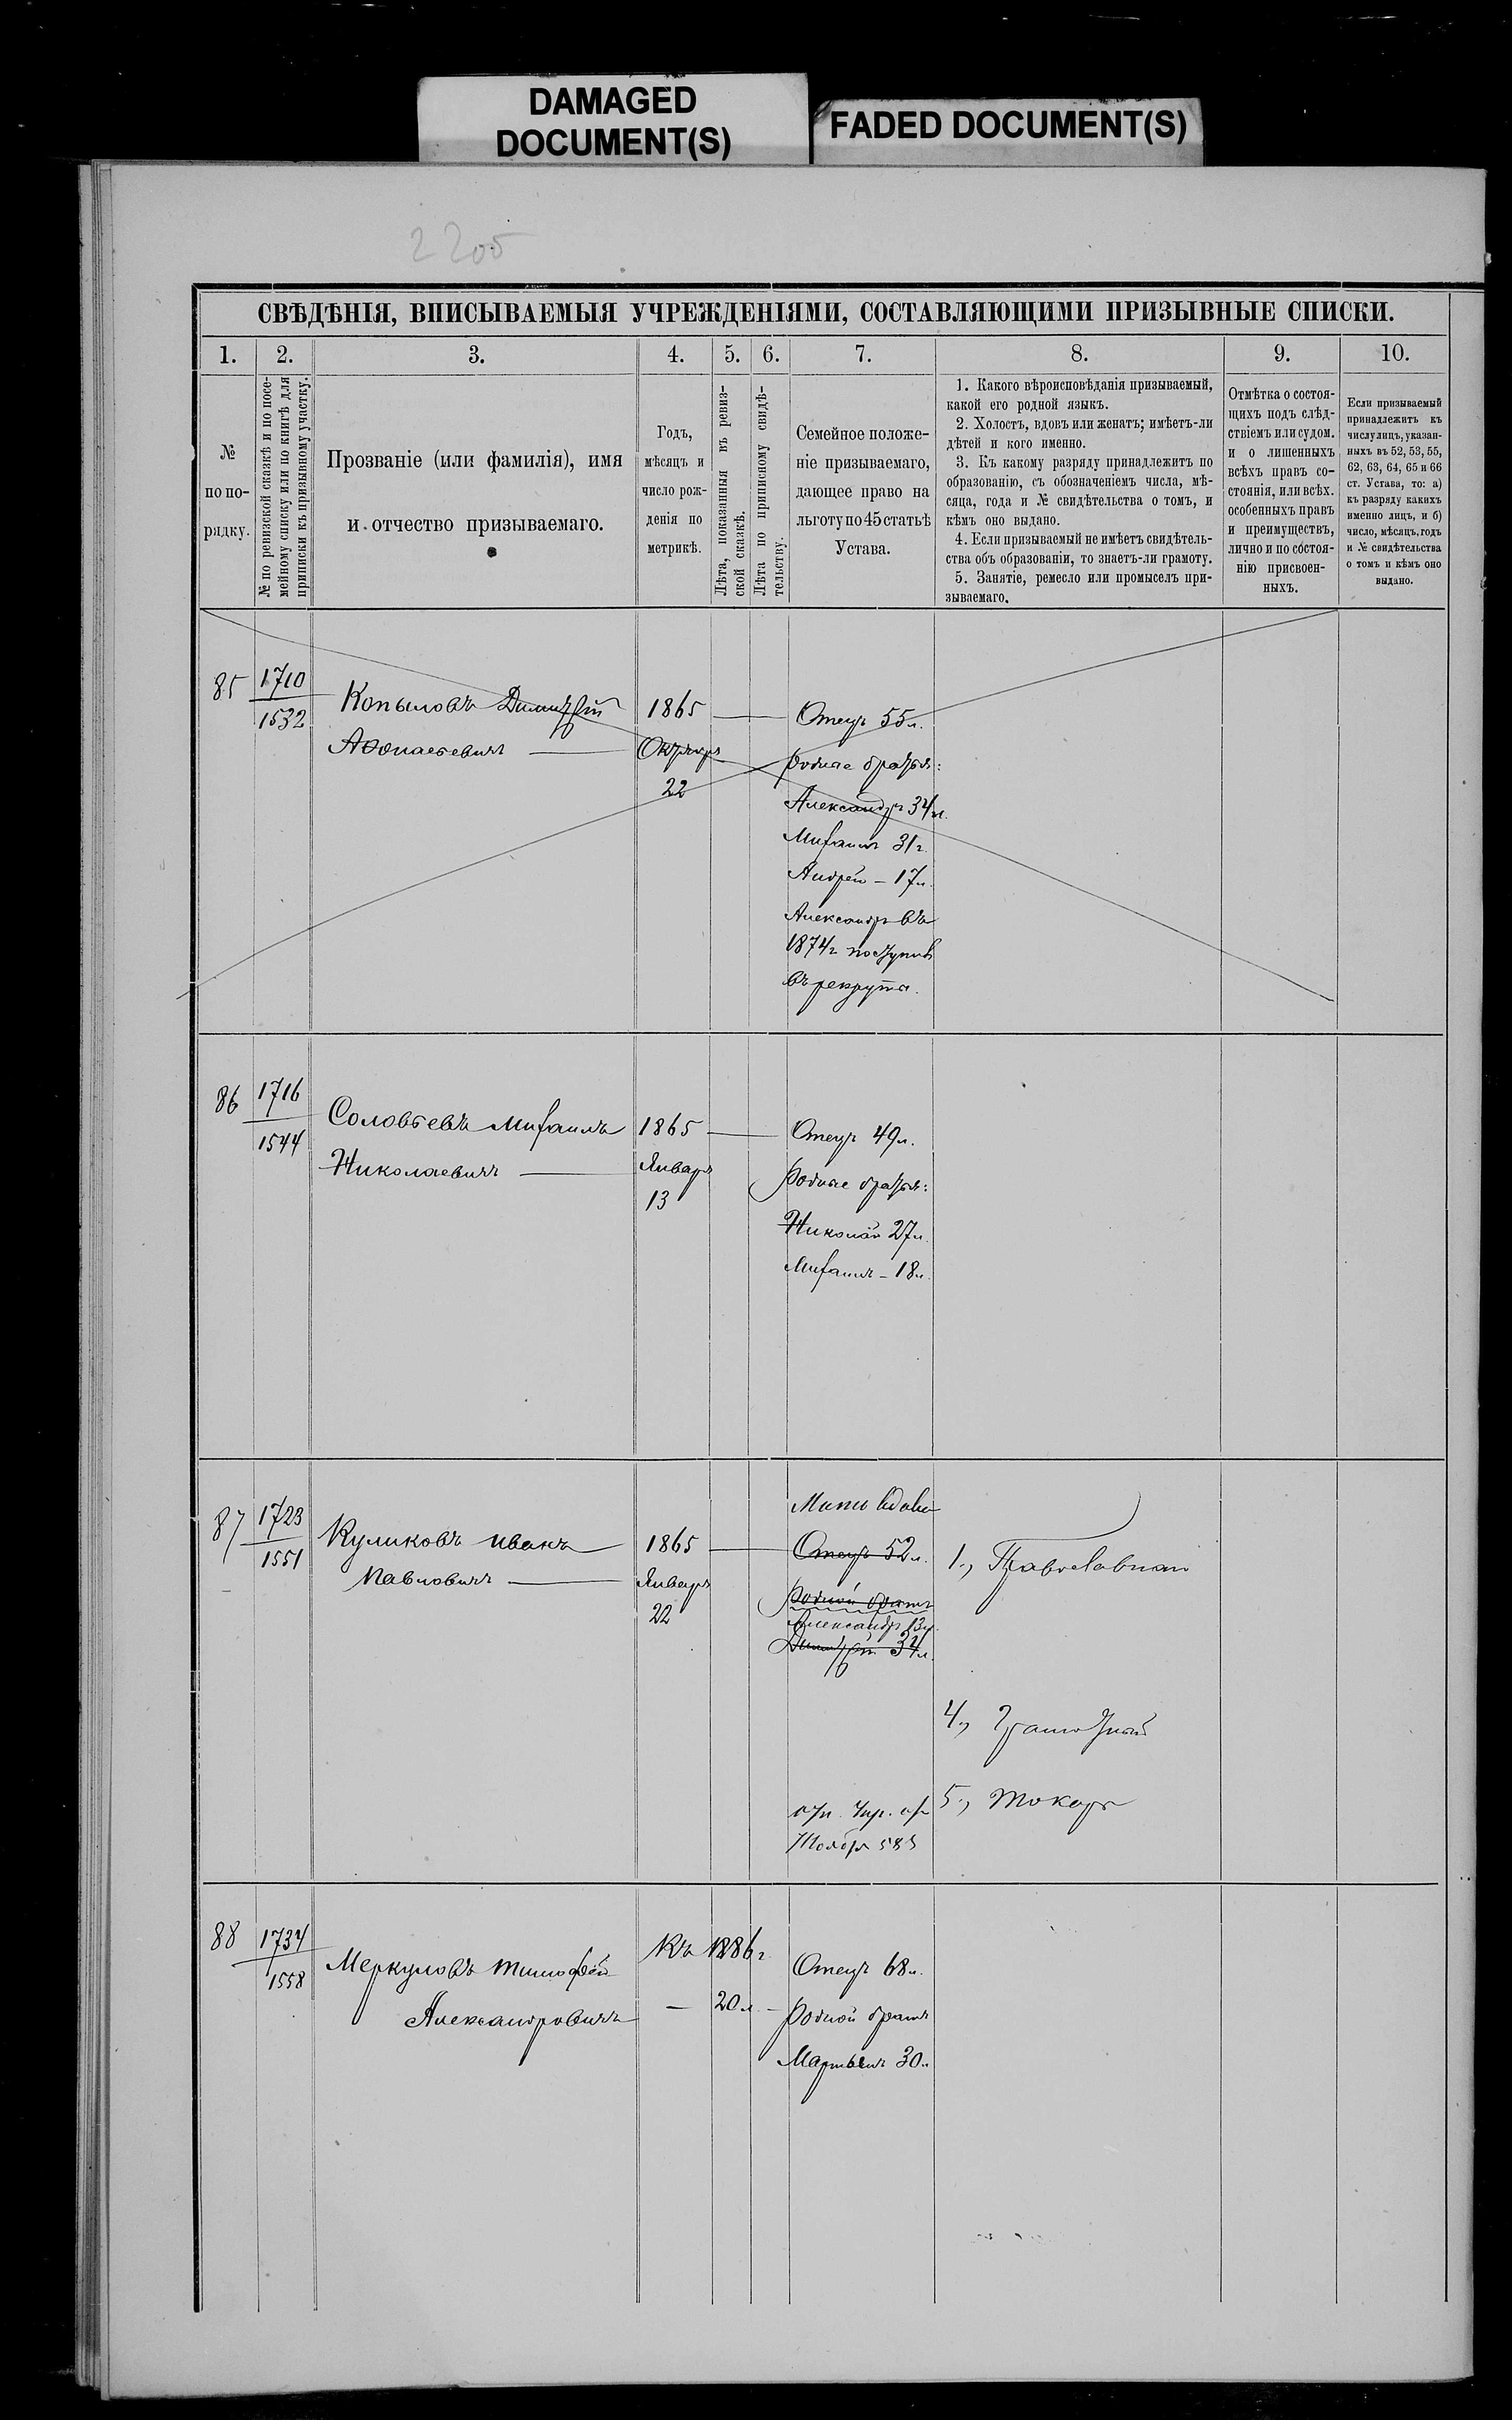 DAMAGED
DOCUMENT(S)
FADED DOCUMENT(S)
2205
СВѢДѢНІЯ, ВПИСЫВАЕМЫЯ УЧРЕЖДЕНІЯМИ, СОСТАВЛЯЮЩИМИ ПРИЗЫВНЫЕ СПИСКИ.
1.
2.
3.
4.
5.
6.
7.
8.
9.
10.
№
по по-
рядку.
№ по ревизской сказкѣ и по посе-
мейному списку или по книгѣ для
приписки къ призывному участку.
Прозваніе (или фамилія), имя
и отчество призываемаго.
Годъ,
мѣсяцъ и
число рож-
денія по
метрикѣ.
Лѣта, показанныя въ ревиз-
ской сказкѣ.
Лѣта по приписному свидѣ-
тельству.
Семейное положе-
ніе призываемаго,
дающее право на
льготу по 45 статьѣ
Устава.
1. Какого вѣроисповѣданія призываемый,
какой его родной языкъ.
2. Холостъ, вдовъ или женатъ; имѣетъ-ли
дѣтей и кого именно.
3. Къ какому разряду принадлежитъ по
образованію, съ обозначеніемъ числа, мѣ-
сяца, года и № свидѣтельства о томъ, и
кѣмъ оно выдано.
4. Если призываемый не имѣетъ свидѣтель-
ства объ образованіи, то знаетъ-ли грамоту.
5. Занятіе, ремесло или промыселъ при-
зываемаго.
Отмѣтка о состоя-
щихъ подъ слѣд-
ствіемъ или судом.
и о лишенныхъ
всѣхъ правъ со-
стоянія, или всѣх.
особенныхъ правъ
и преимуществъ,
лично и по состоя-
нію присвоен-
ныхъ.
Если призываемый
принадлежитъ къ
числу лицъ, указан-
ныхъ въ 52, 53, 55,
62, 63, 64, 65 и 66
ст. Устава, то: а)
къ разряду какихъ
именно лицъ, и б)
число, мѣсяцъ, годъ
и № свидѣтельства
о томъ и кѣмъ оно
выдано.
85
1710
1532
Копыловъ Димитрій
Афонасьевичъ
1865
Октября
22
Отецъ 55 л.
родные братья:
Александръ 34 л.
Михаилъ 31 г.
Андрей – 17 л.
Александръ въ
1874 г поступилъ
въ рекруты.
86
1716
1544
Соловьевъ Михаилъ
Николаевичъ
1865
Января
13
Отецъ 49 л.
родные братья:
Николай 27 л.
Михаилъ – 18 л.
87
1723
1551
Куликовъ Иванъ
Павловичъ
1865
Января
22
Мать вдова
Отецъ 52 л.
родной братъ
Александръ 13 л.
Димитрій 34 л.
Ноября 585
1., Православный
4., Грамотный
5., Токарь
88
1734
1558
Меркуловъ Тимофей
Александровичъ
Къ 1886 г
20 л
Отецъ 68 л.
родной братъ
Мартынъ 30 л